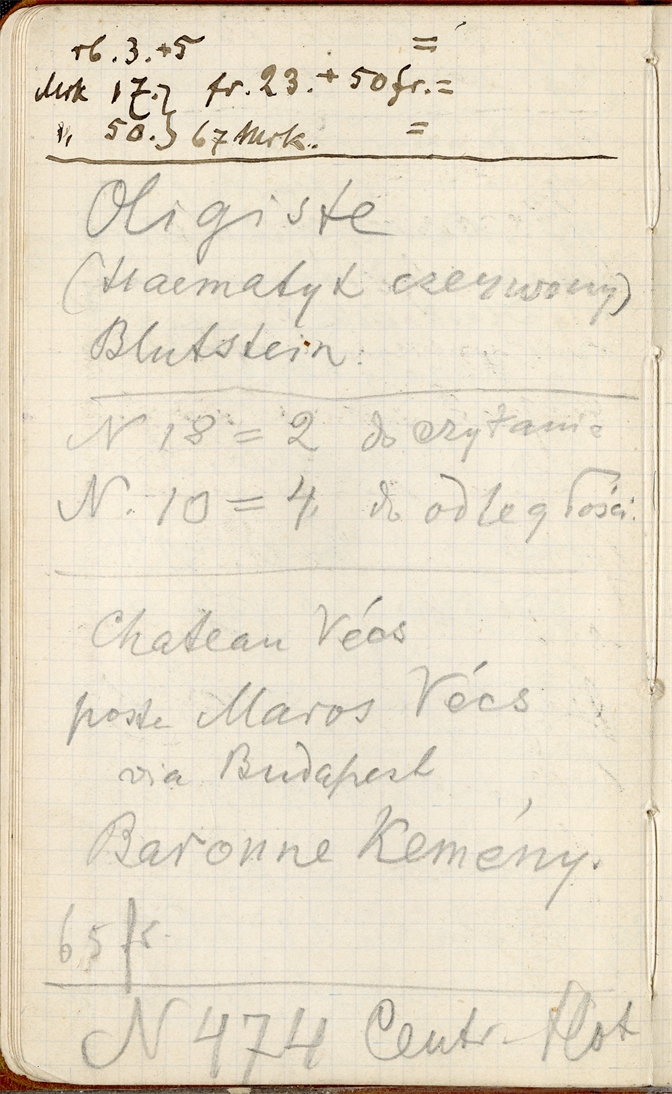 rb. 3.+5 =
Mrk 17.} fr. 23.+50 fr. =
" 50.} 67 Mrk. =
Oligiste
(Haematyt czerwony)
Blutstein.
N 18 = 2 do czytania
N. 10 = 4 do odległości.
Chateau Vécs
poste Maros Vécs
via Budapest
Baronne Kemény.
65 fr.
N 474 Centr. Hot